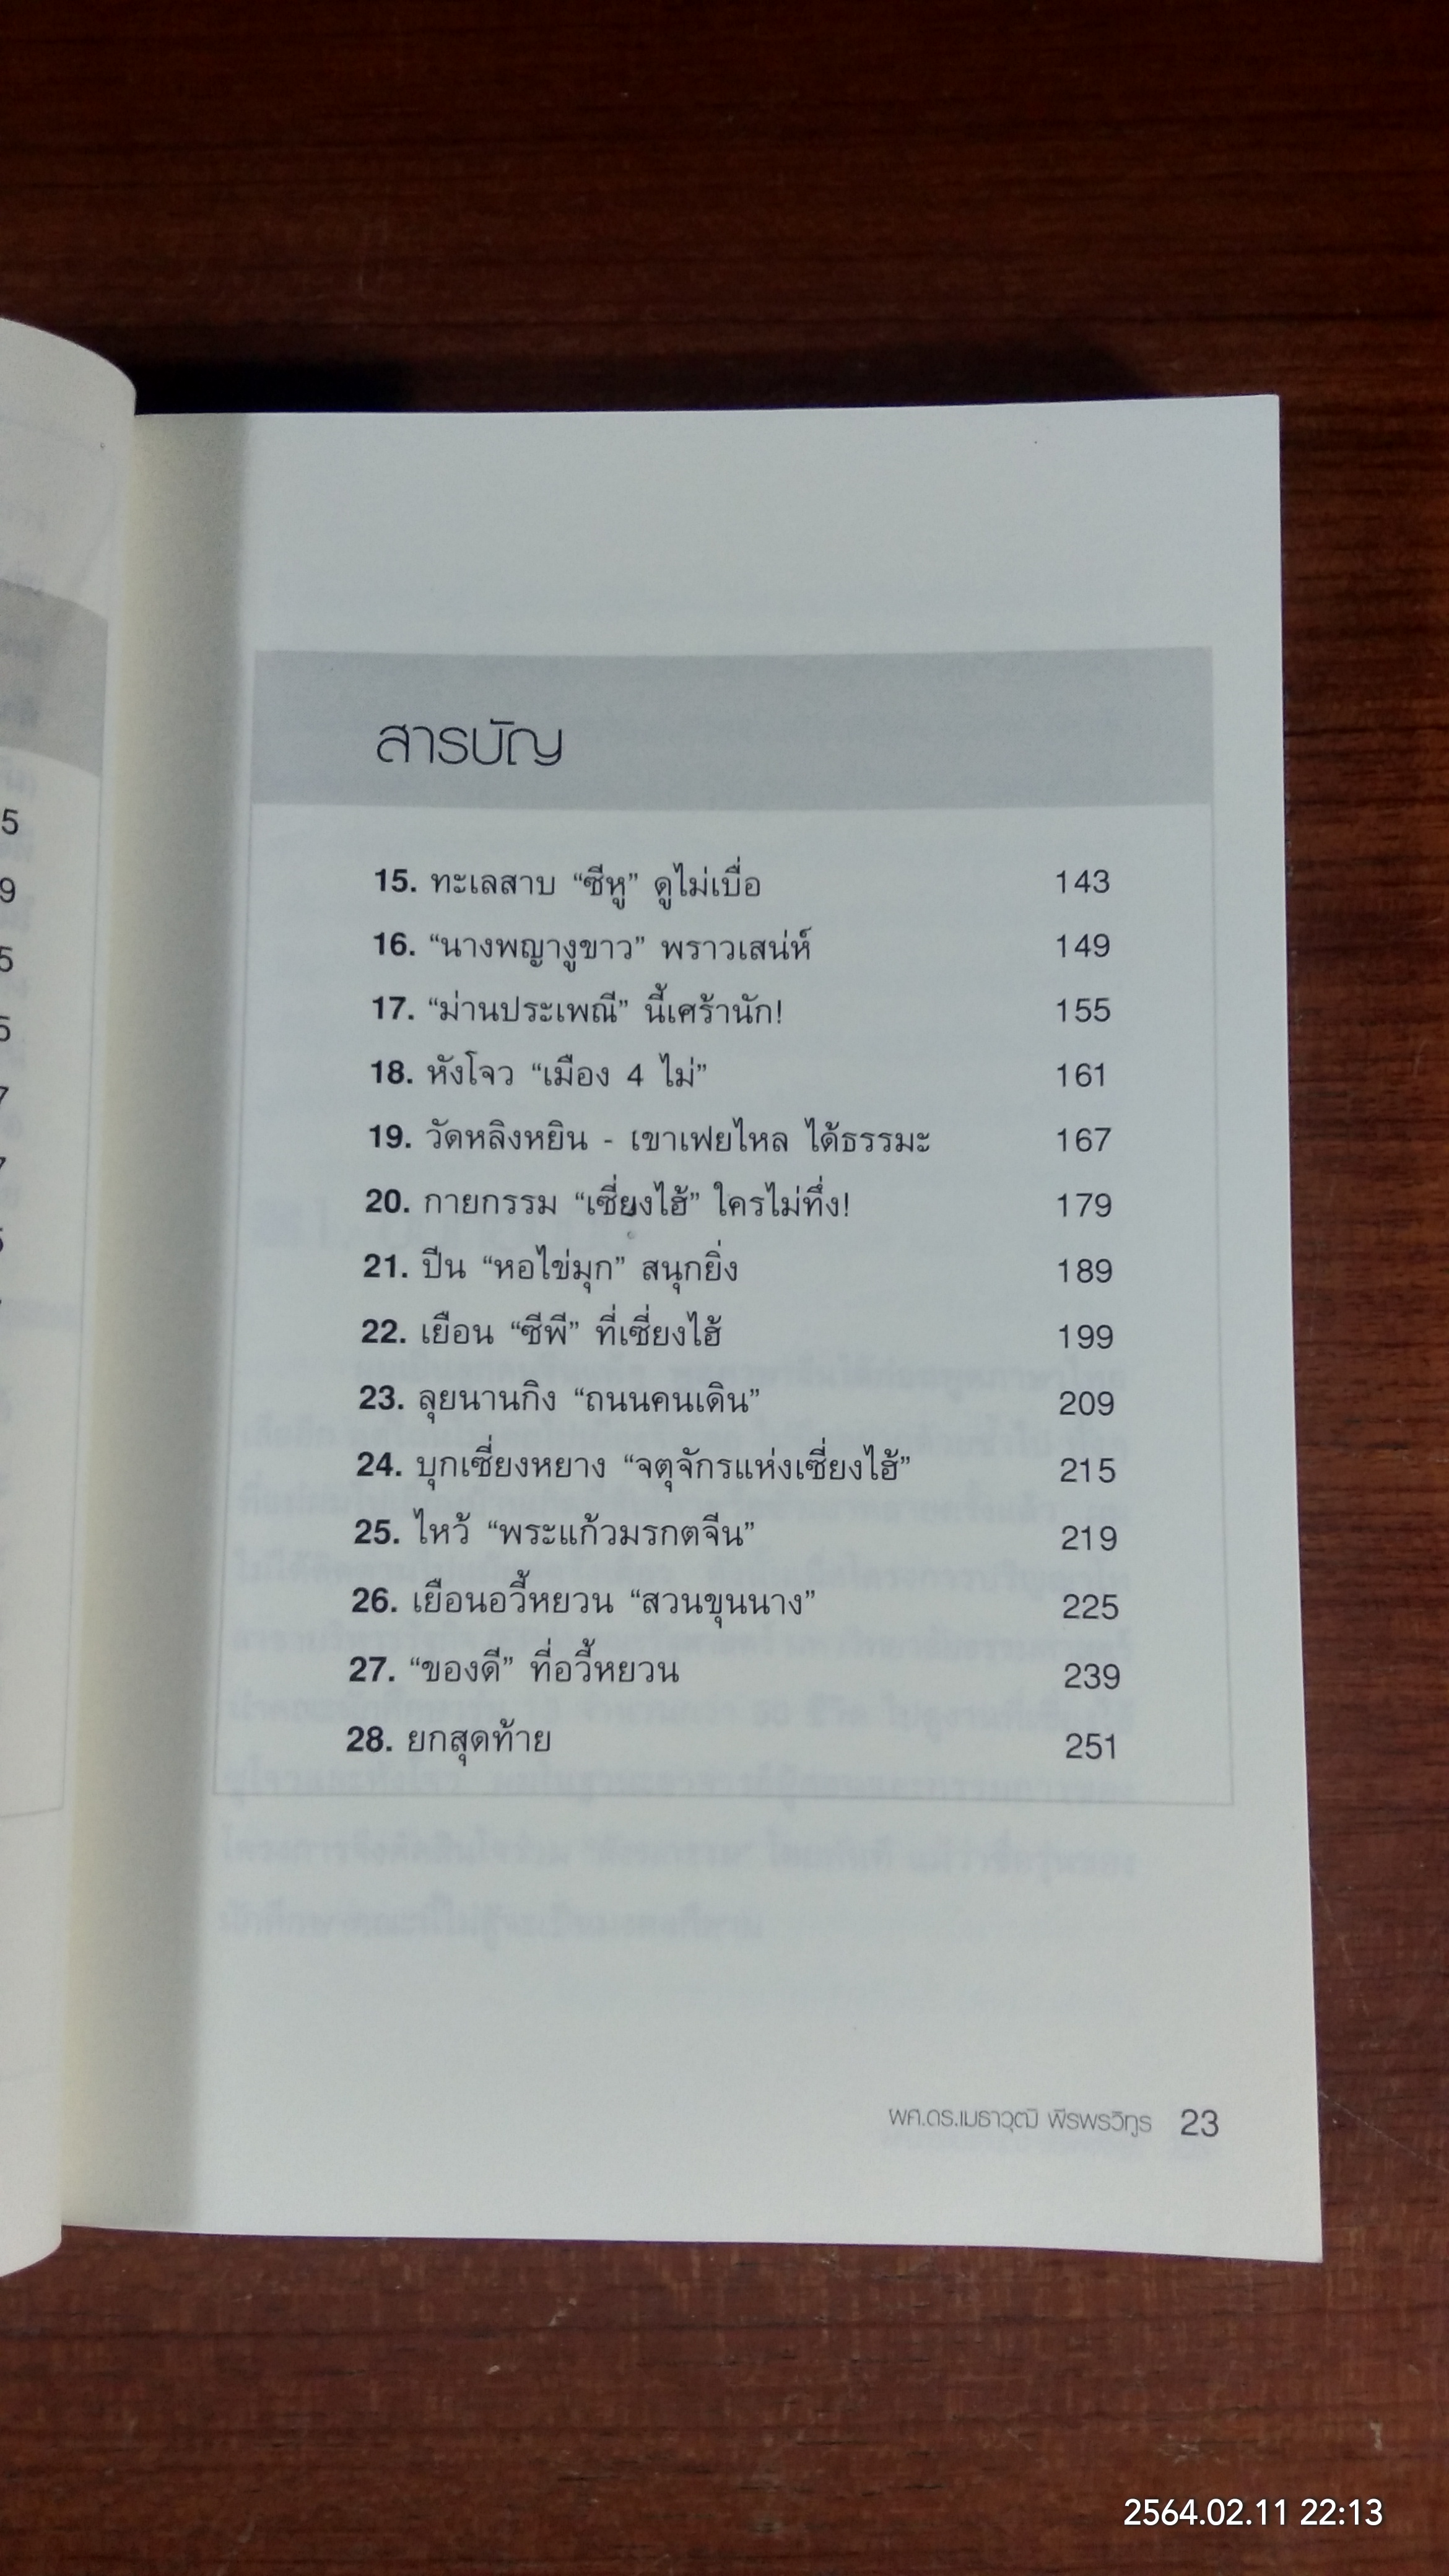 สารบัญ
15. ทะเลสาบ “ซีหู” ดูไม่เบื่อ 143
16. “นางพญางูขาว” พราวเสน่ห์ 149
17. “ม่านประเพณี” นี้เศร้านัก! 155
18. หังโจว “เมือง 4 ไม่” 161
19. วัดหลิงหยิน - เขาเฟยไหล ได้ธรรมะ 167
20. กายกรรม “เซี่ยงไฮ้” ใครไม่ทึ่ง! 179
21. ปีน “หอไข่มุก” สนุกยิ่ง 189
22. เยือน “ซีพี” ที่เซี่ยงไฮ้ 199
23. ลุยนานกิง “ถนนคนเดิน” 209
24. บุกเซี่ยงหยาง “จตุจักรแห่งเซี่ยงไฮ้” 215
25. ไหว้ “พระแก้วมรกตจีน” 219
26. เยือนอวี้หยวน “สวนขุนนาง” 225
27. “ของดี” ที่อวี้หยวน 239
28. ยกสุดท้าย 251
ผศ.ดร.เมธาวุฒิ พีรพรวิทูร 23
2564.02.11 22:13